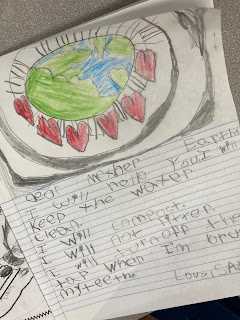 dear mother Earth
I will help you I will
keep the water
clean.
I will compost.
I will not litter
I will turn off the
tap when I'm brus
my teeth.
Love, SA